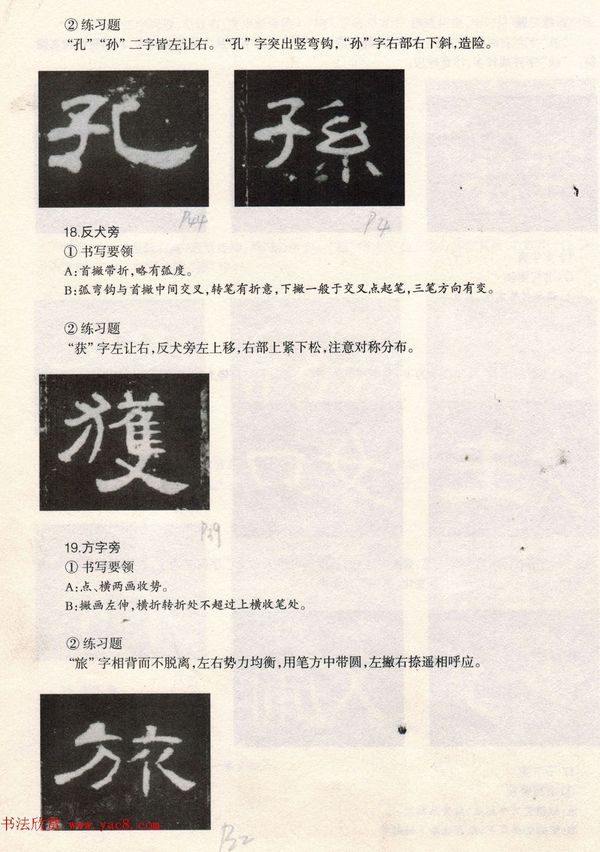 ②练习题
“孔”“孙”二字皆左让右。“孔”字突出竖弯钩，“孙”字右部右下斜，造险。
孔
孫
P44
P4
18.反犬旁
①书写要领
A:首撇带折，略有弧度。
B:弧弯钩与首撇中间交叉，转笔有折意，下撇一般于交叉点起笔，三笔方向有变。
②练习题
“获”字左让右，反犬旁左上移，右部上紧下松，注意对称分布。
獲
P39
19.方字旁
①书写要领
A:点、横两画收势。
B:撇画左伸，横折转折处不超过上横收笔处。
②练习题
“旅”字相背而不脱离，左右势力均衡，用笔方中带圆，左撇右捺遥相呼应。
旅
书法欣赏 www.yac8.com
P32